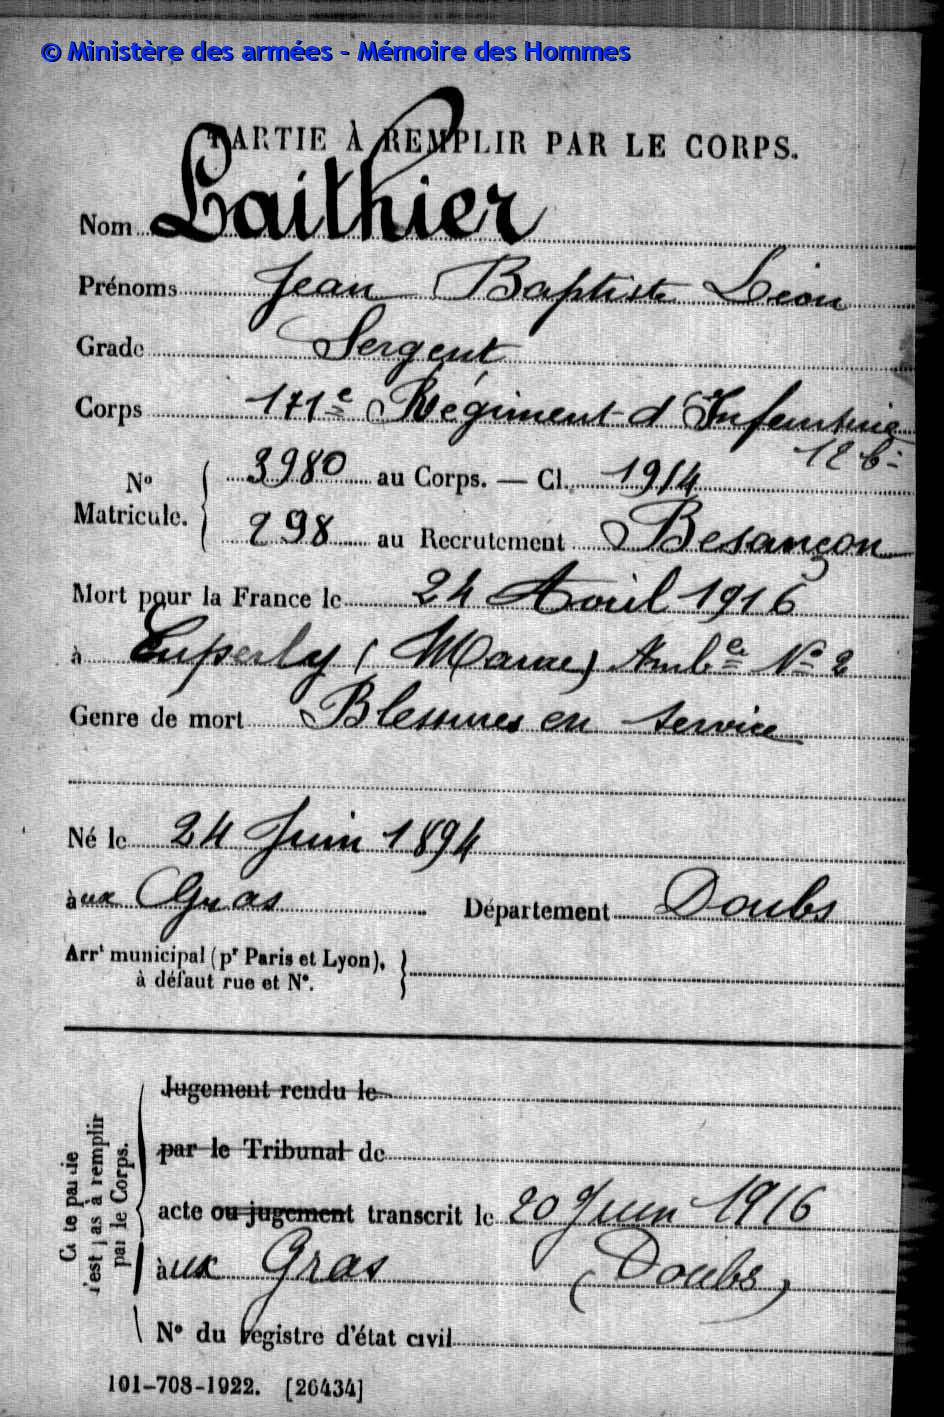 © Ministère des armées - Mémoire des Hommes
PARTIE À REMPLIR PAR LE CORPS.
Nom Laithier
Prénoms Jean Baptiste Léon
Grade Sergent
Corps 171e Régiment d'Infanterie
No Matricule. 3980 au Corps. — Cl. 1914
298 au Recrutement Besançon
Mort pour la France le 24 Avril 1916
à Cuperly (Marne) Ambce No 2
Genre de mort Blessures en service
Né le 24 Juin 1894
aux Gras Département Doubs
Arrt municipal (pr Paris et Lyon),
à défaut rue et No.
Cette partie
n'est pas à remplir
par le Corps.
Jugement rendu le
par le Tribunal de
acte ou jugement transcrit le 20 Juin 1916
aux Gras (Doubs)
No du registre d'état civil
101-708-1922. [26434]